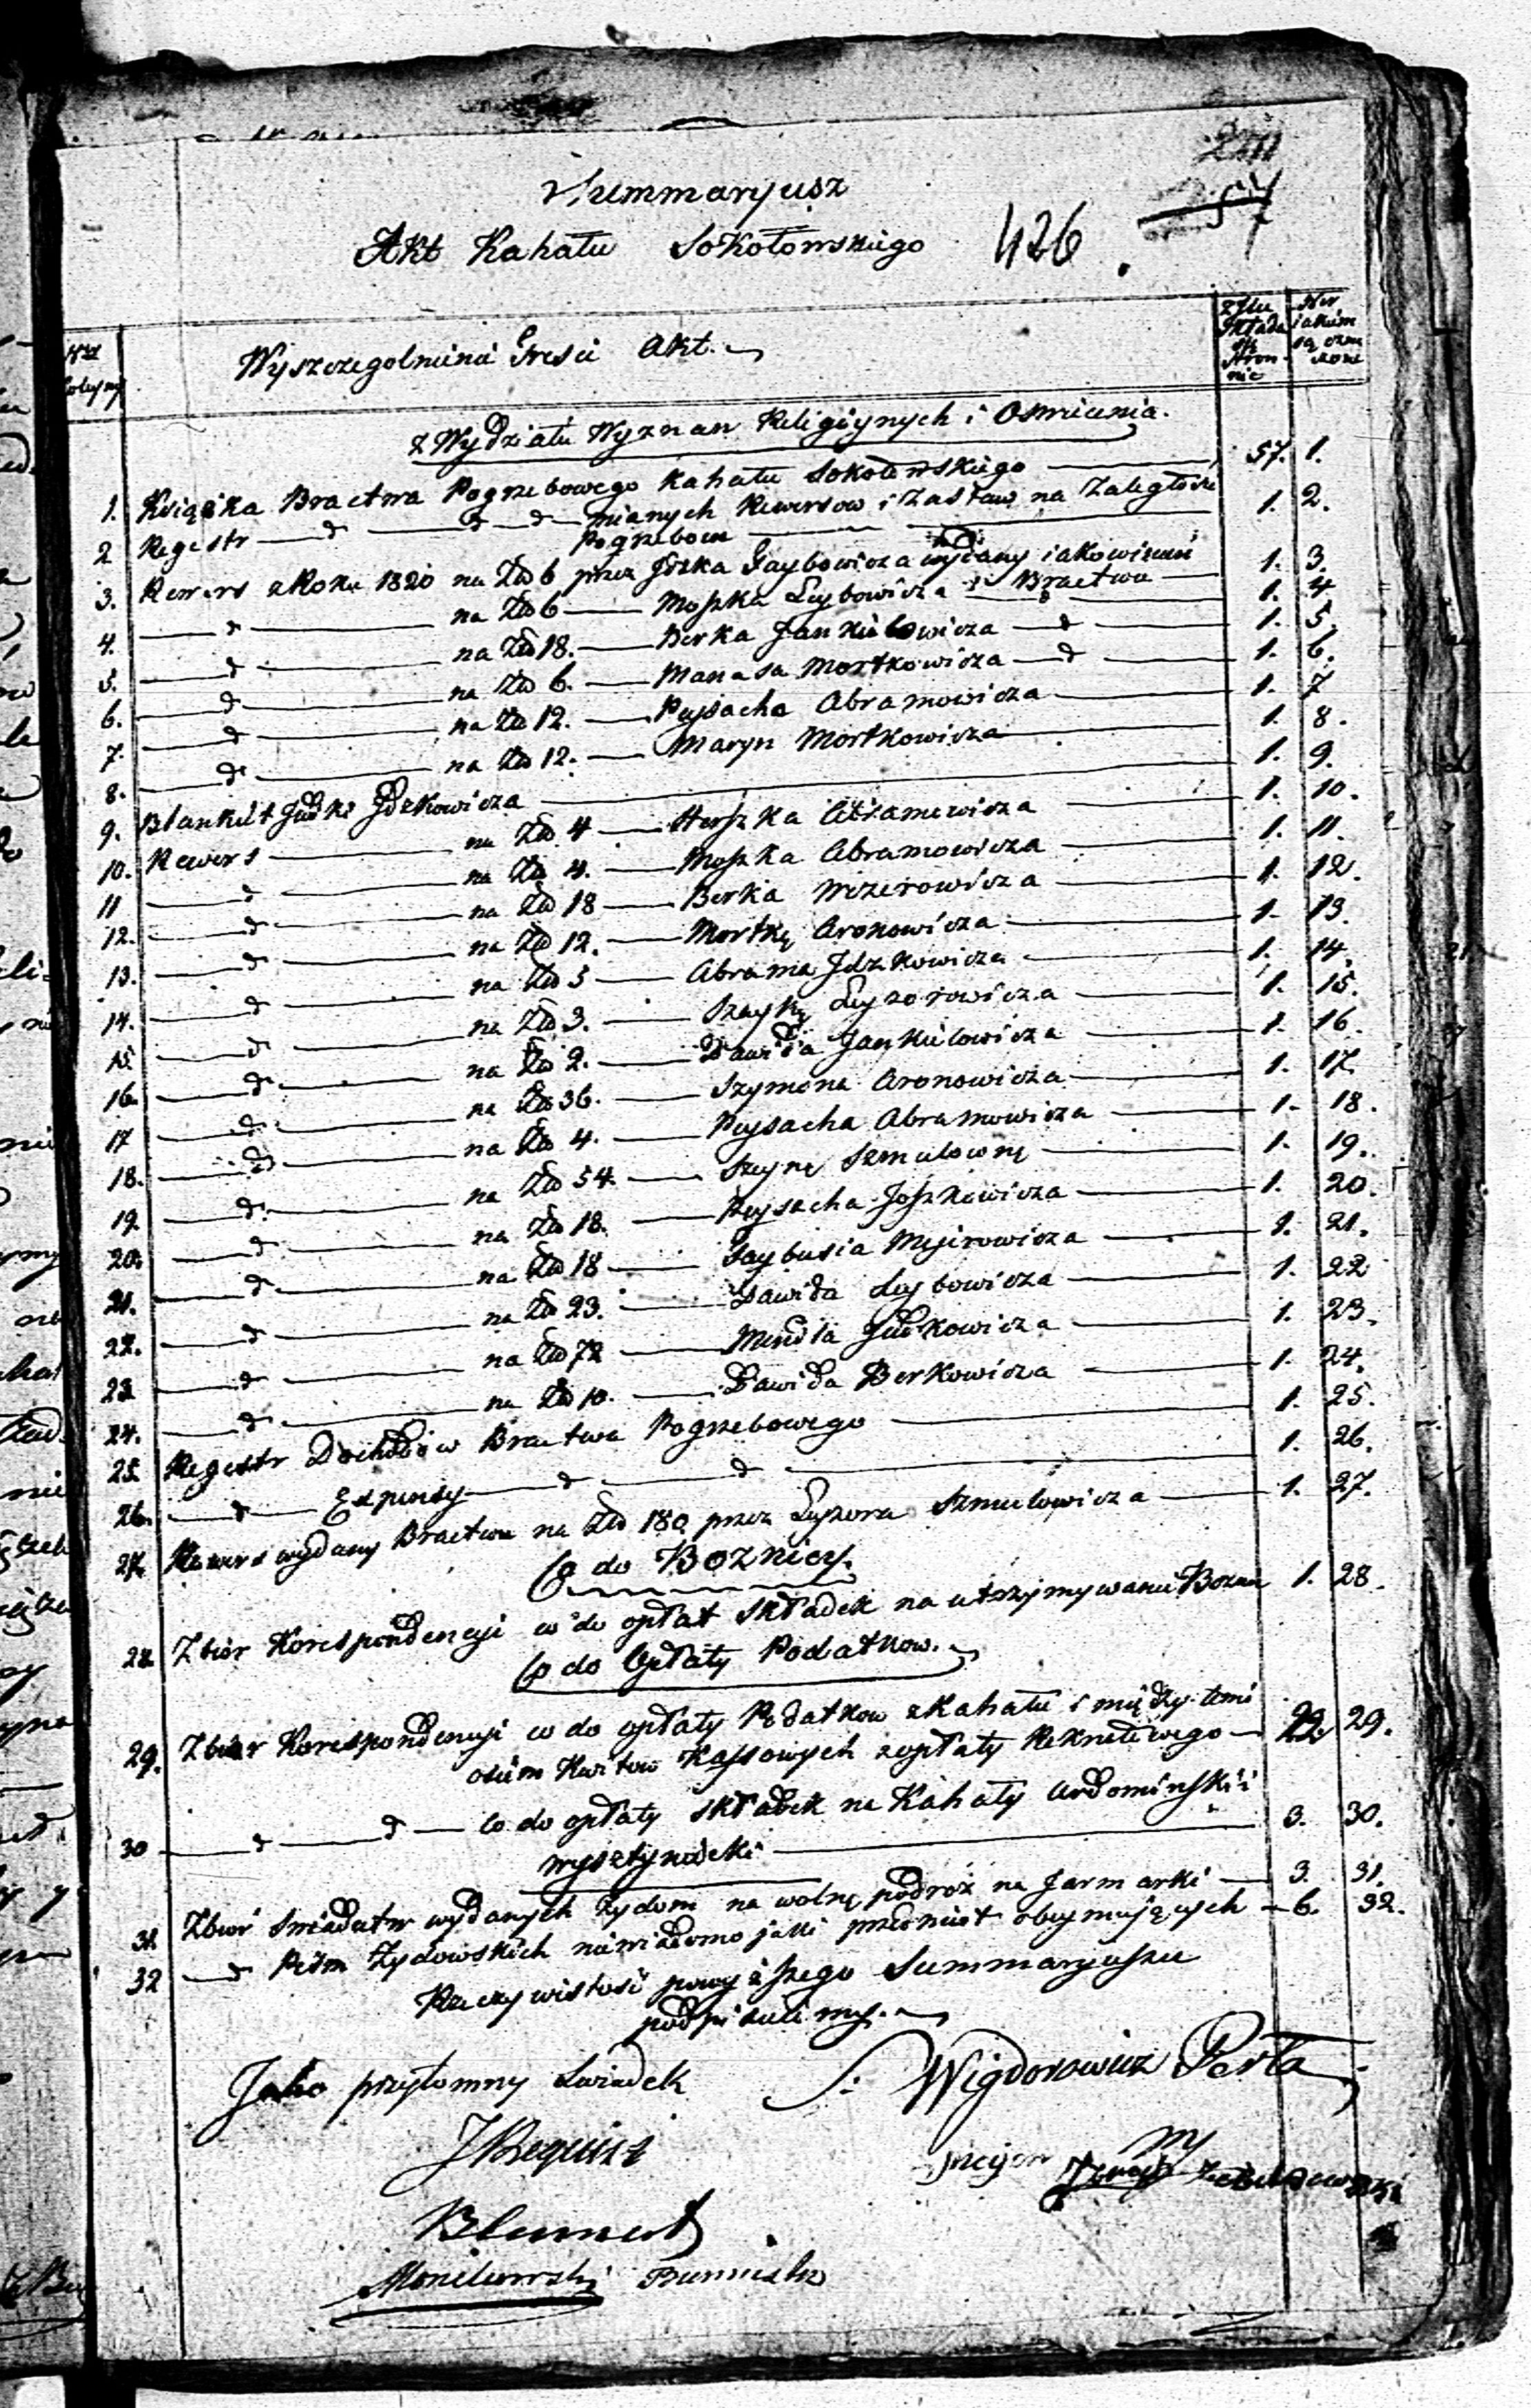 Summaryusz
Akt Kahału Sokołowskiego 426.
57
Wyszczegolnienie Treści Akt.
z Ilu składa się stronnic
Ner iakiem są ozna czone
z Wydziału Wyznan Religiynych i Oswiecenia.
1. Książka Bractwa Pogrzebowego Kahału Sokołowskiego — 57. 1.
2 Regestr — d — d — d — mianych Rewersow i Zastaw na Zaległości
Pogrzebowe — 1. 2.
3. Rewers z Roku 1820 na Zło 6 przez Jdzka Laybowicza wydany iakowemuś 1. 3.
4. — d — na Zło 6 — Moszka Leybowicza Bractwu — 1. 4
5. — d — na Zło 18. — Berka Jankielowicza — d — 1. 5.
6. — d — na Zło 6. — Manasa Mortkowicza — d — 1. 6.
7. — d — na Zło 12. — Peysacha Abramowicza — 1. 7
8. — d — na Zło 12. — Maryn Mortkowicza — 1. 8.
9. Blankiet Judki Jdzkowicza — 1. 9.
10. Rewers — na Zło 4 — Herszka Abramowicza — 1. 10.
11 — d — na Zło 4. — Moszka Abramowicza — 1. 11.
12. — d — na Zło 18 — Berka Wizerowicza — 1. 12.
13. — d — na Zło 12. — Mortkę Aronowicza — 1. 13.
14. — d — na Zło 5 — Abrama Jdzkowicza — 1. 14.
15 — d — na Zło 3. — Szaykę Leyzorowicza — 1. 15.
16. — d — na Zło 2. — Dawida Jankielowicza — 1. 16.
17 — d — na Zło 36. — Szymona Aronowicza — 1. 17.
18. — d — na Zło 4. — Peysacha Abramowicza — 1. 18.
19. — d — na Zło 54. — Szeynę Szmulownę — 1. 19.
20. — d — na Zło 18. — Peysacha Joszkowicza — 1. 20.
21. — d — na Zło 18 — Laybusia Meierowicza — 1. 21.
22. — d — na Zło 23. — Dawida Leybowicza — 1. 22
23 — d — na Zło 72 — Mendla Judkowicza — 1. 23.
24. — d — na Zło 10. — Dawida Berkowicza — 1. 24.
25. Regestr Dochodow Bractwa Pogrzebowego — 1. 25.
26. — d — Expensy — d — d — 1. 26.
27. Rewers wydany Bractwu na Zło 180 przez Leyzora Szmulowicza — 1. 27.
Co do Bożnicy.
28. Zbior Korespondencyi co do opłat składek na utrzymywanie Bożni 1. 28.
Co do Opłaty Podatkow.
29. Zbior Korespondencyi co do opłaty Podatkow z Kahału i między temi
osiem Kwitow Kassowych z opłaty Rekrutowego — 22 29.
30 — d — d — co do opłaty składek na Kahały
— 3. 30.
31. Zbior swiadectw wydanych żydom na wolną podroż na Jarmarki — 3. 31.
32 — d Pism Żydowskich niewiadomo jaki przedmiot obeymujących — 6. 32.
Rzeczywistość powyższego Summaryuszu
podpisali my.
Jako przytomny Swiadek
S: Wigdorowicz Perla